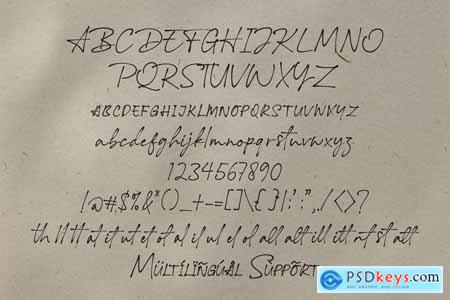 ABCDEFGHIJKLMNO
PQRSTUVWXYZ
ABCDEFGHIJKLMNOPQRSTUVWXYZ
abcdefghijklmnopqrstuvwxyz
1234567890
!@#$%&*()_+-=[]\{}|;':",./<>?
th ll tt at it ut et ot al il ul el ol all att ill itt nt st ait
Mültilïñgüäl Süppört
PSDkeys.com
BEST GRAPHIC, BEST DESIGN